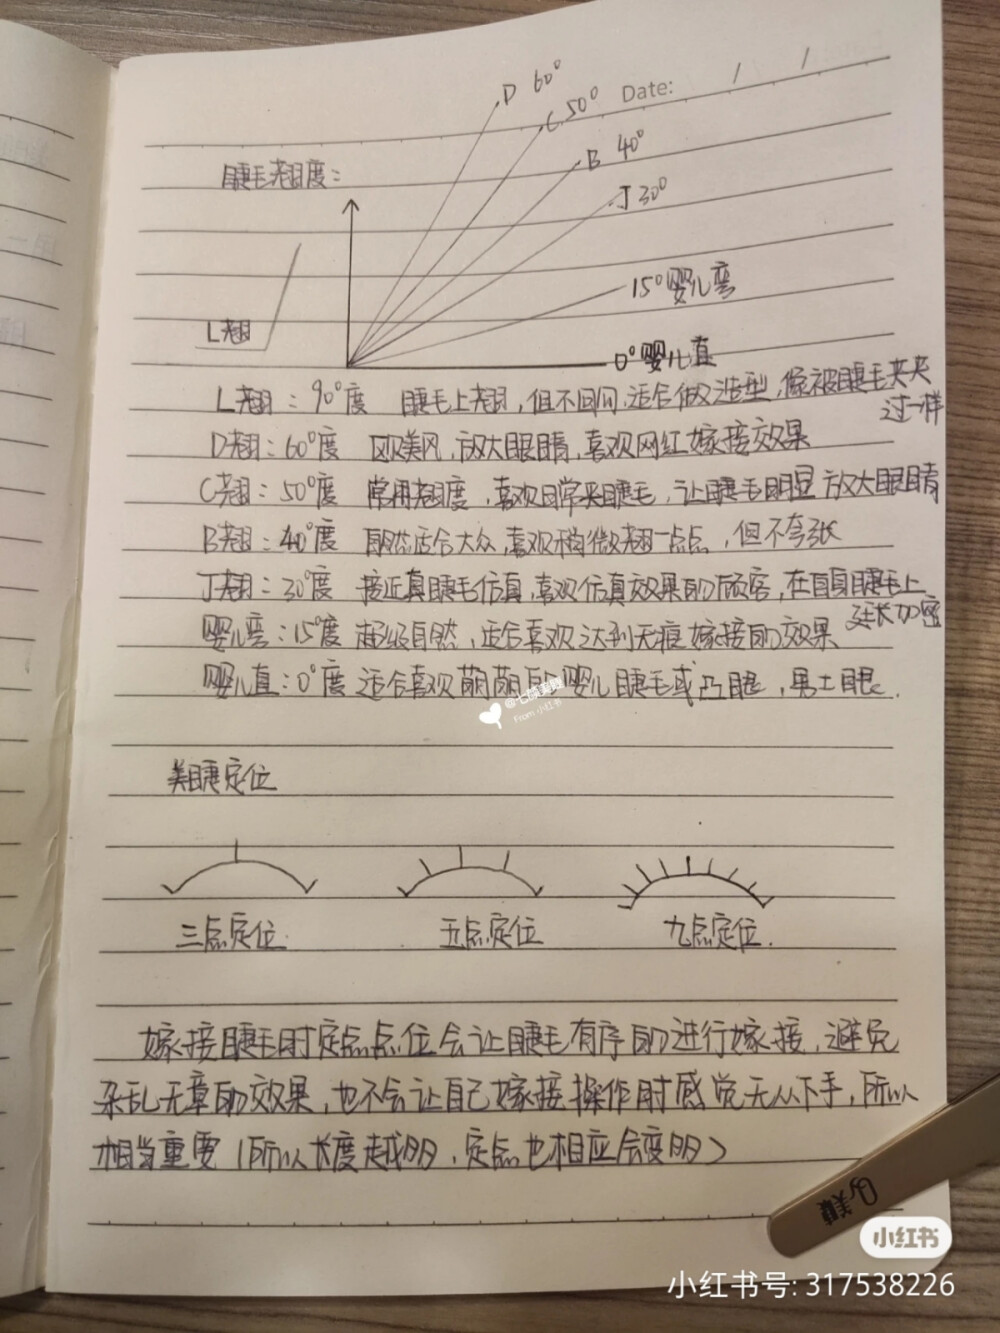 D 60°
C 50°
Date: / /
B 40°
睫毛翘度：
J 30°
15°婴儿弯
L翘
0°婴儿直
L翘：90°度 睫毛上翘，但不自同，适合做造型，像被睫毛夹夹
过一样
D翘：60°度 欧美风，放大眼睛，喜欢网红嫁接效果
C翘：50°度 常用翘度，喜欢日常夹睫毛，让睫毛明显 放大眼睛
B翘：40°度 自然适合大众，喜欢稍微翘一点点，但不夸张
J翘：30°度 接近真睫毛仿真，喜欢仿真效果的顾客，在自身睫毛上
延长加密
婴儿弯：15°度 超级自然，适合喜欢达到无痕嫁接的效果
婴儿直：0°度 适合喜欢萌萌的婴儿睫毛或凸眼，男士眼.
From 小红书
美睫定位
三点定位.
五点定位
九点定位.
嫁接睫毛时定点点位会让睫毛有序的进行嫁接，避免
杂乱无章的效果，也不会让自己嫁接操作时感觉无从下手，所以
相当重要（所以长度越多，定点也相应会变多）
小红书
小红书号: 317538226